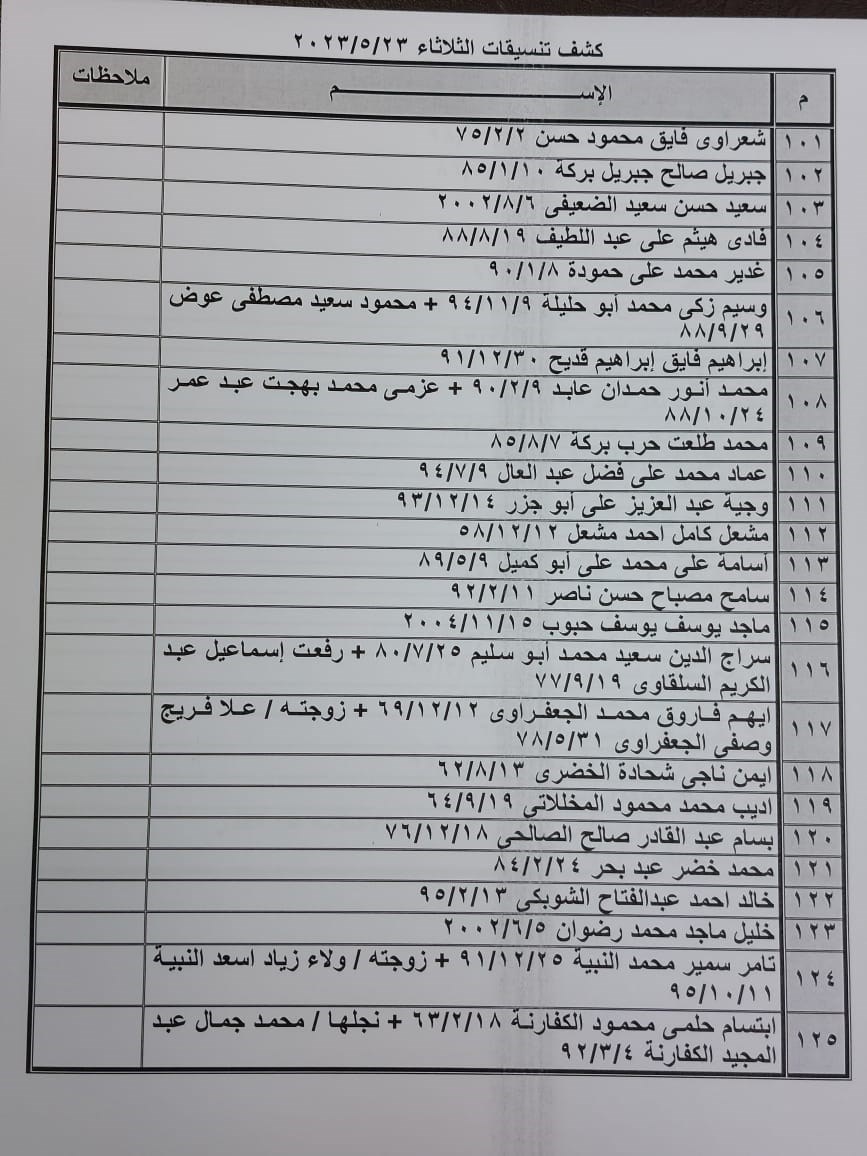 كشف تنسيقات الثلاثاء ٢٠٢٣/٥/٢٣
م الإســـــــــــــــــــــــــم ملاحظات
١٠١ شعراوى فايق محمود حسن ٧٥/٢/٢
١٠٢ جبريل صالح جبريل بركة ٨٥/١/١٠
١٠٣ سعيد حسن سعيد الضعيفى ٢٠٠٢/٨/٦
١٠٤ فادى هيثم على عبد اللطيف ٨٨/٨/١٩
١٠٥ غدير محمد على حمودة ٩٠/١/٨
١٠٦ وسيم زكى محمد أبو حليلة ٩٤/١١/٩ + محمود سعيد مصطفى عوض
٨٨/٩/٢٩
١٠٧ إبراهيم فايق إبراهيم قديح ٩١/١٢/٣٠
١٠٨ محمد أنور حمدان عابد ٩٠/٢/٩ + عزمى محمد بهجت عبد عمر
٨٨/١٠/٢٤
١٠٩ محمد طلعت حرب بركة ٨٥/٨/٧
١١٠ عماد محمد على فضل عبد العال ٩٤/٧/٩
١١١ وجية عبد العزيز على أبو جزر ٩٣/١٢/١٤
١١٢ مشعل كامل احمد مشعل ٥٨/١٢/١٢
١١٣ أسامة على محمد على أبو كميل ٨٩/٥/٩
١١٤ سامح مصباح حسن ناصر ٩٢/٢/١١
١١٥ ماجد يوسف يوسف حبوب ٢٠٠٤/١١/١٥
١١٦ سراج الدين سعيد محمد أبو سليم ٨٠/٧/٢٥ + رفعت إسماعيل عبد
الكريم السلقاوى ٧٧/٩/١٩
١١٧ ايهم فاروق محمد الجعفراوى ٦٩/١٢/١٢ + زوجته / علا فريج
وصفى الجعفراوى ٧٨/٥/٣١
١١٨ ايمن ناجى شحادة الخضرى ٦٢/٨/١٣
١١٩ اديب محمد محمود المخللاتى ٦٤/٩/١٩
١٢٠ بسام عبد القادر صالح الصالحى ٧٦/١٢/١٨
١٢١ محمد خضر عبد بحر ٨٤/٢/٢٤
١٢٢ خالد احمد عبدالفتاح الشوبكى ٩٥/٢/١٣
١٢٣ خليل ماجد محمد رضوان ٢٠٠٢/٦/٥
١٢٤ تامر سمير محمد النبية ٩١/١٢/٢٥ + زوجته / ولاء زياد اسعد النبية
٩٥/١٠/١١
١٢٥ ابتسام حلمى محمود الكفارنة ٦٣/٢/١٨ + نجلها / محمد جمال عبد
المجيد الكفارنة ٩٢/٣/٤